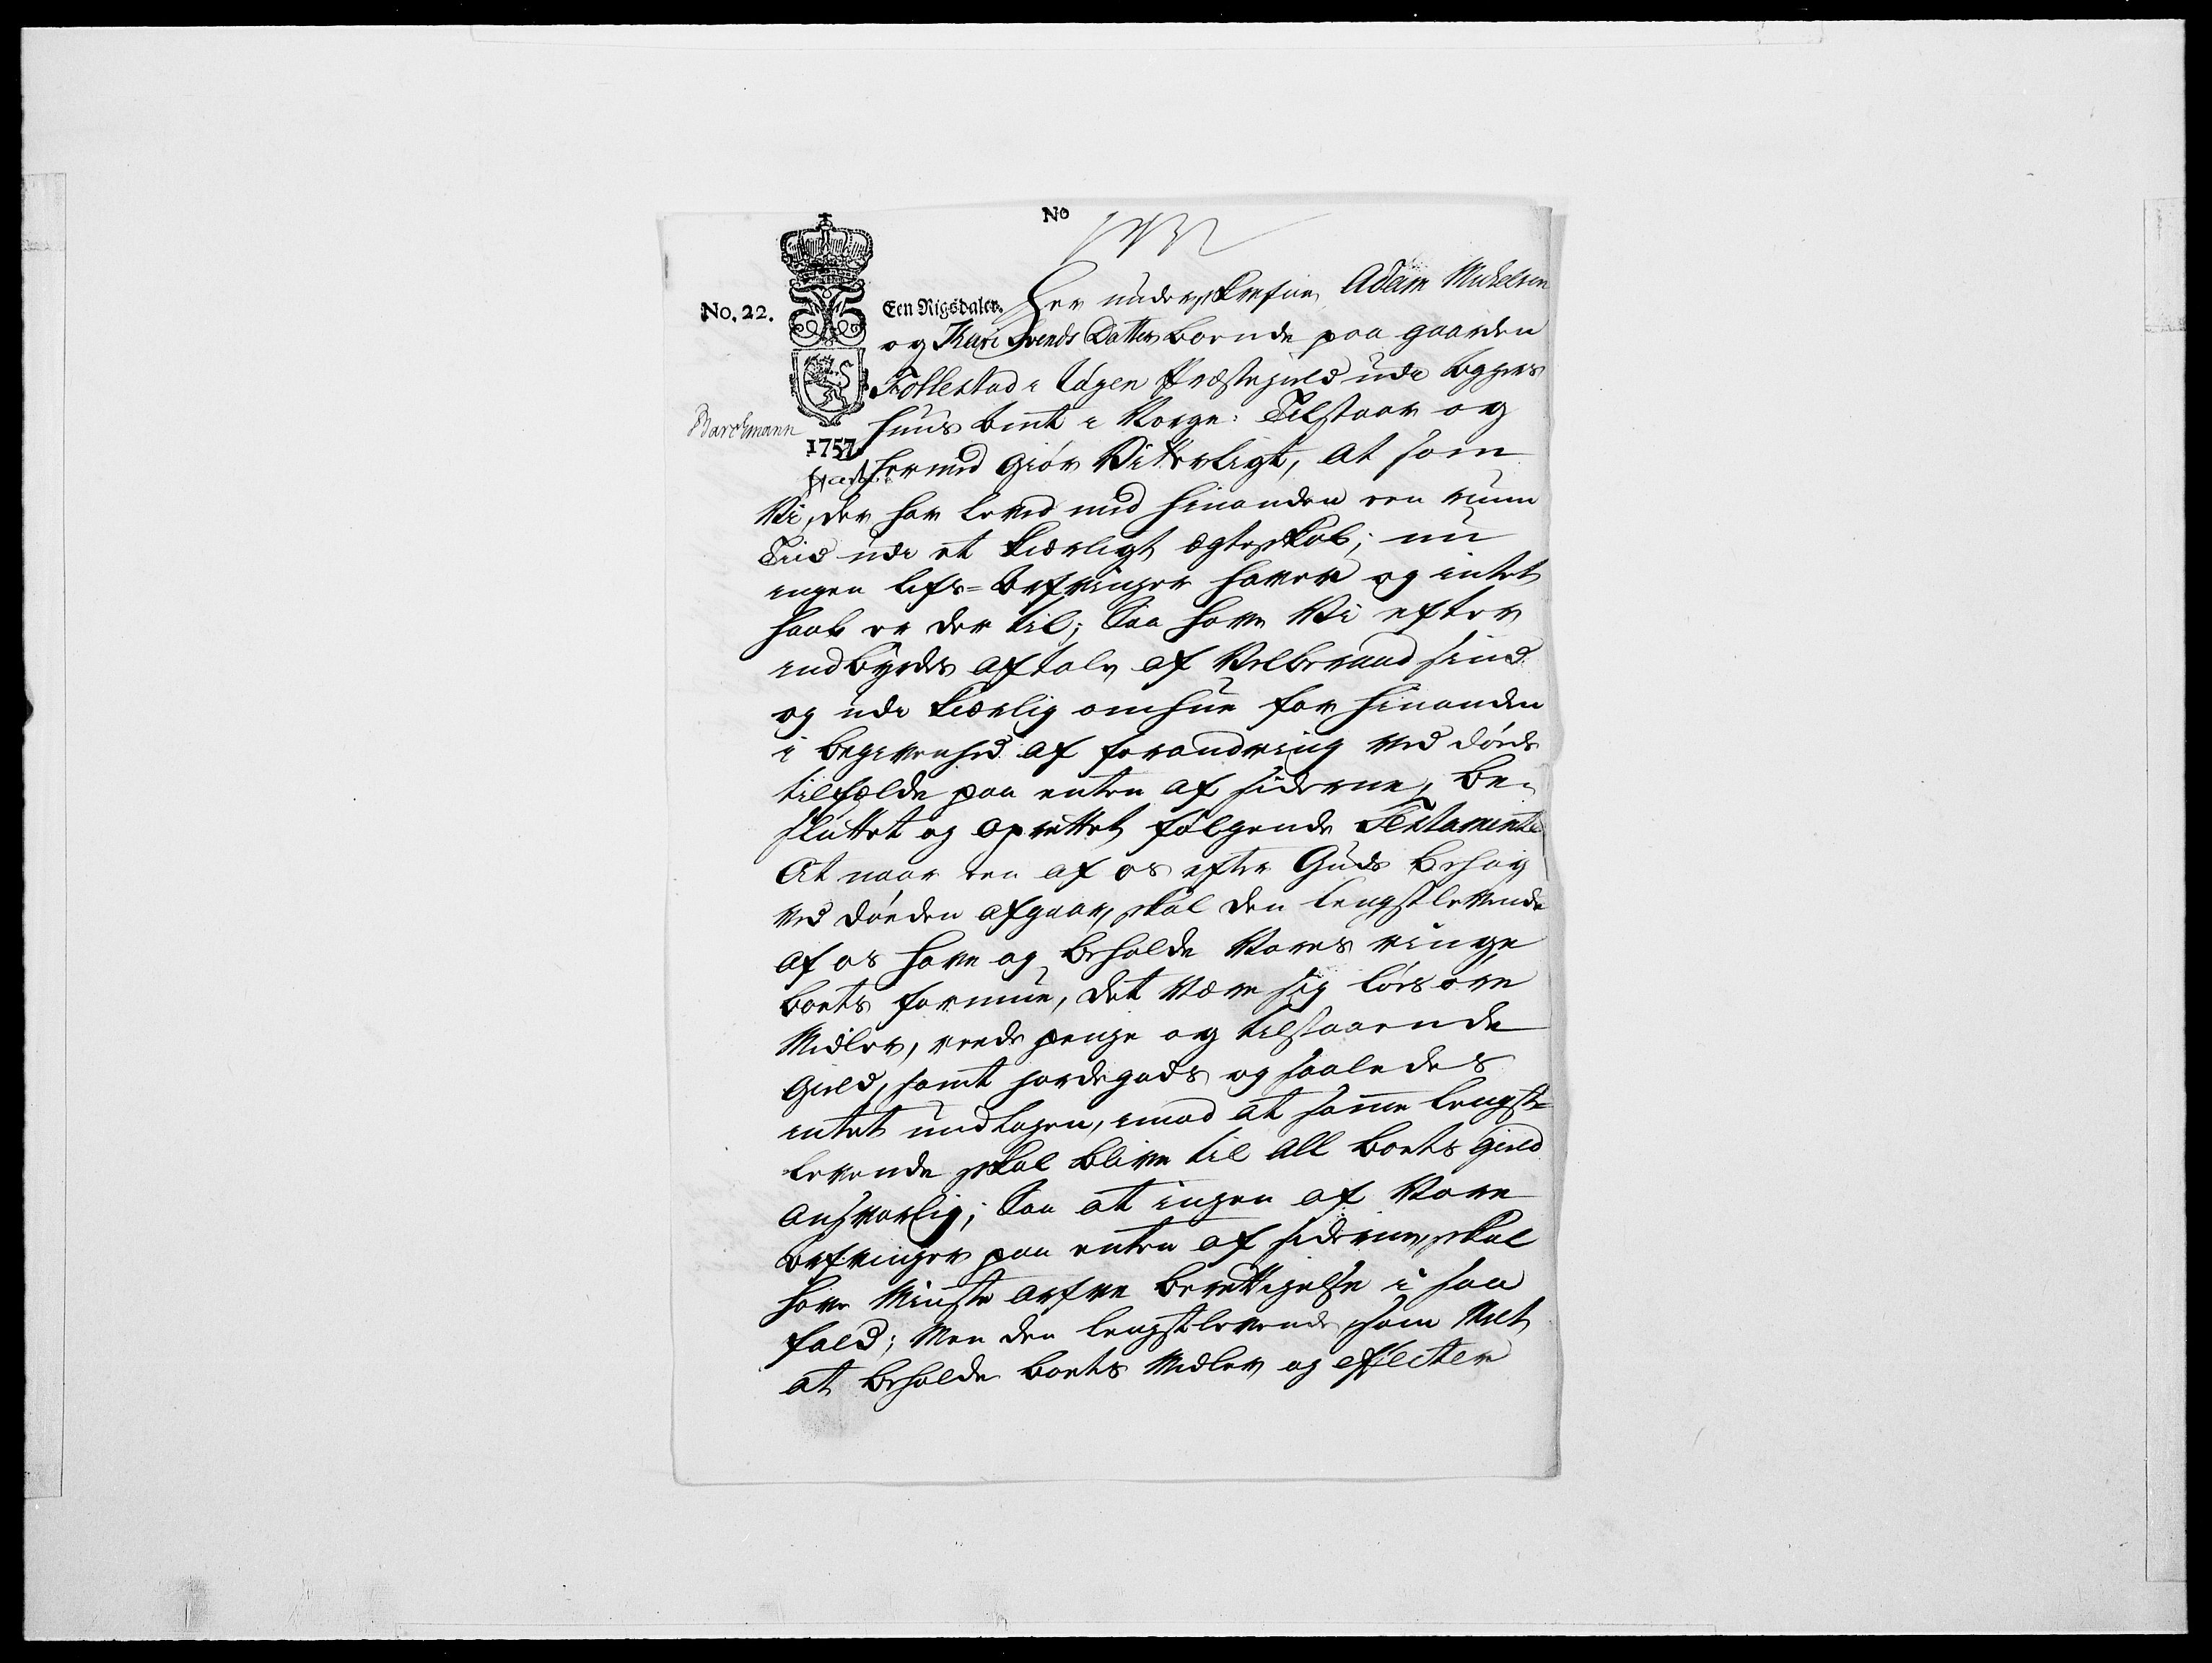 No
No. 22.
Een Rigsdaler.
Barchmann
1757
Her underskrefne Adam Michelsen
og Kari Svends Datter boende paa gaarden
Follestad i Præstegield udi Agers
huus Amt i Norge: Tilstaar og
hermed giør Vitterligt, At som
Vi, der har leved med hinanden een rum
Tiid udi et kierligt ægteskab; nu
ingen lifs-Arfvinger haver og intet
haab er der til; Saa have Vi efter
indbyrdes aftale af Velberaad hu
og udi kierlig omhue for hinanden
i begivenhed af forandring ved døds
tilfælde paa enten af siderne, be-
sluttet og oprettet følgende Testamente
At naar een af os efter Guds behag
ved døden afgaar, skal den lengstlevende
af os have og beholde Vores ringe
boets formue, det være sig løsøre
Midler, reede penge og tilstaaende
Gield, samt jordegods og saaledes
intet undtagen, imod at samme lengst-
levende skal blive til all boets gield
ansvarlig; Saa at ingen af Vore
arfvinger paa enten af siderne, skal
have Minste arfve berettigelse i saa
fald; Men den lengstlevende som Meldt
at beholde boets Midler og effecter